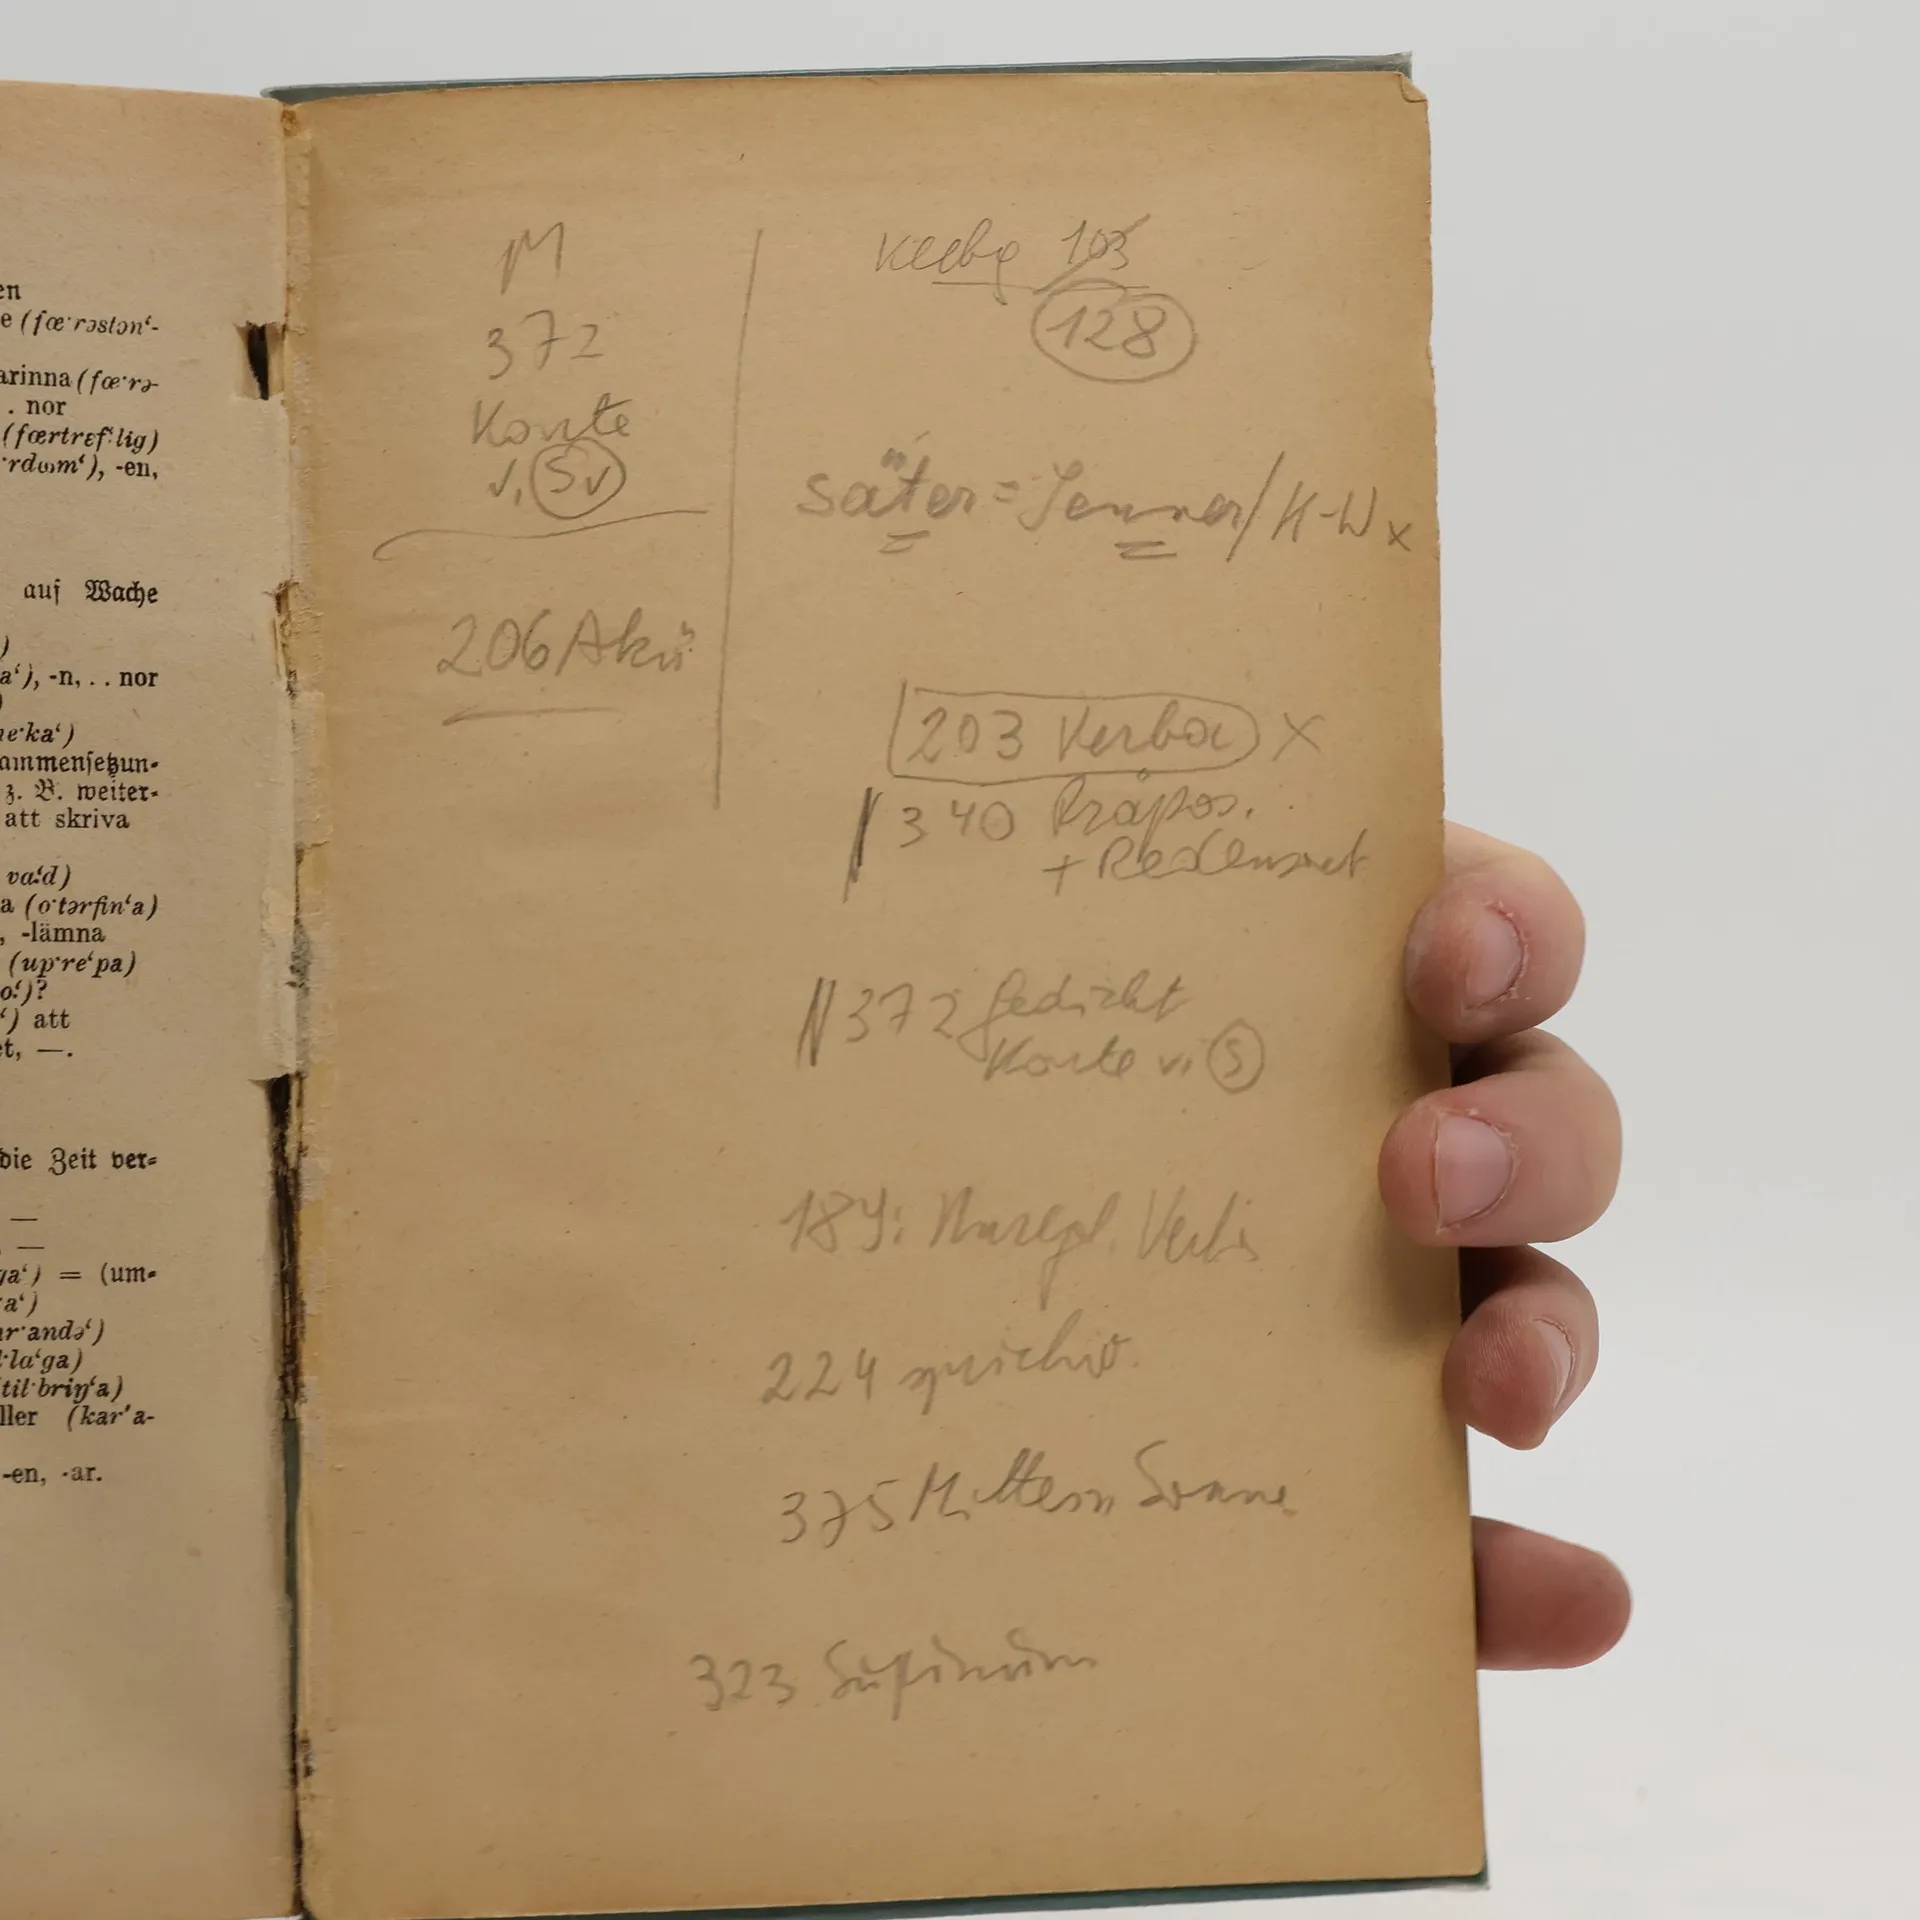 en
e (fœ·rəstən‘-
arinna (fœ·rə-
. . nor
(fœrtrɛf‘lig)
·rdωm‘), -en,
auf Wache
)
a‘), -n, . . nor
)
ne·ka‘)
ammensetzun-
z. B. weiter-
att skriva
va‘d)
a (o·tərfin‘a)
, -lämna
(up·re‘pa)
o‘)?
‘) att
et, —.
die Zeit ver-
—
, —
ga‘) = (um-
·a‘)
ur·andə‘)
l·la‘ga)
til·briŋ‘a)
ller (kar‘a-
-en, -ar.
M
372
Karte
v. Sv
206 Akü
103
128
säter = Senner / K-W x
203 Verba x
340 Präpos.
+ Redensart
372 Gedicht
Karte v. S
184: Verb
224
375 Mittern Sonne
323 Supinum